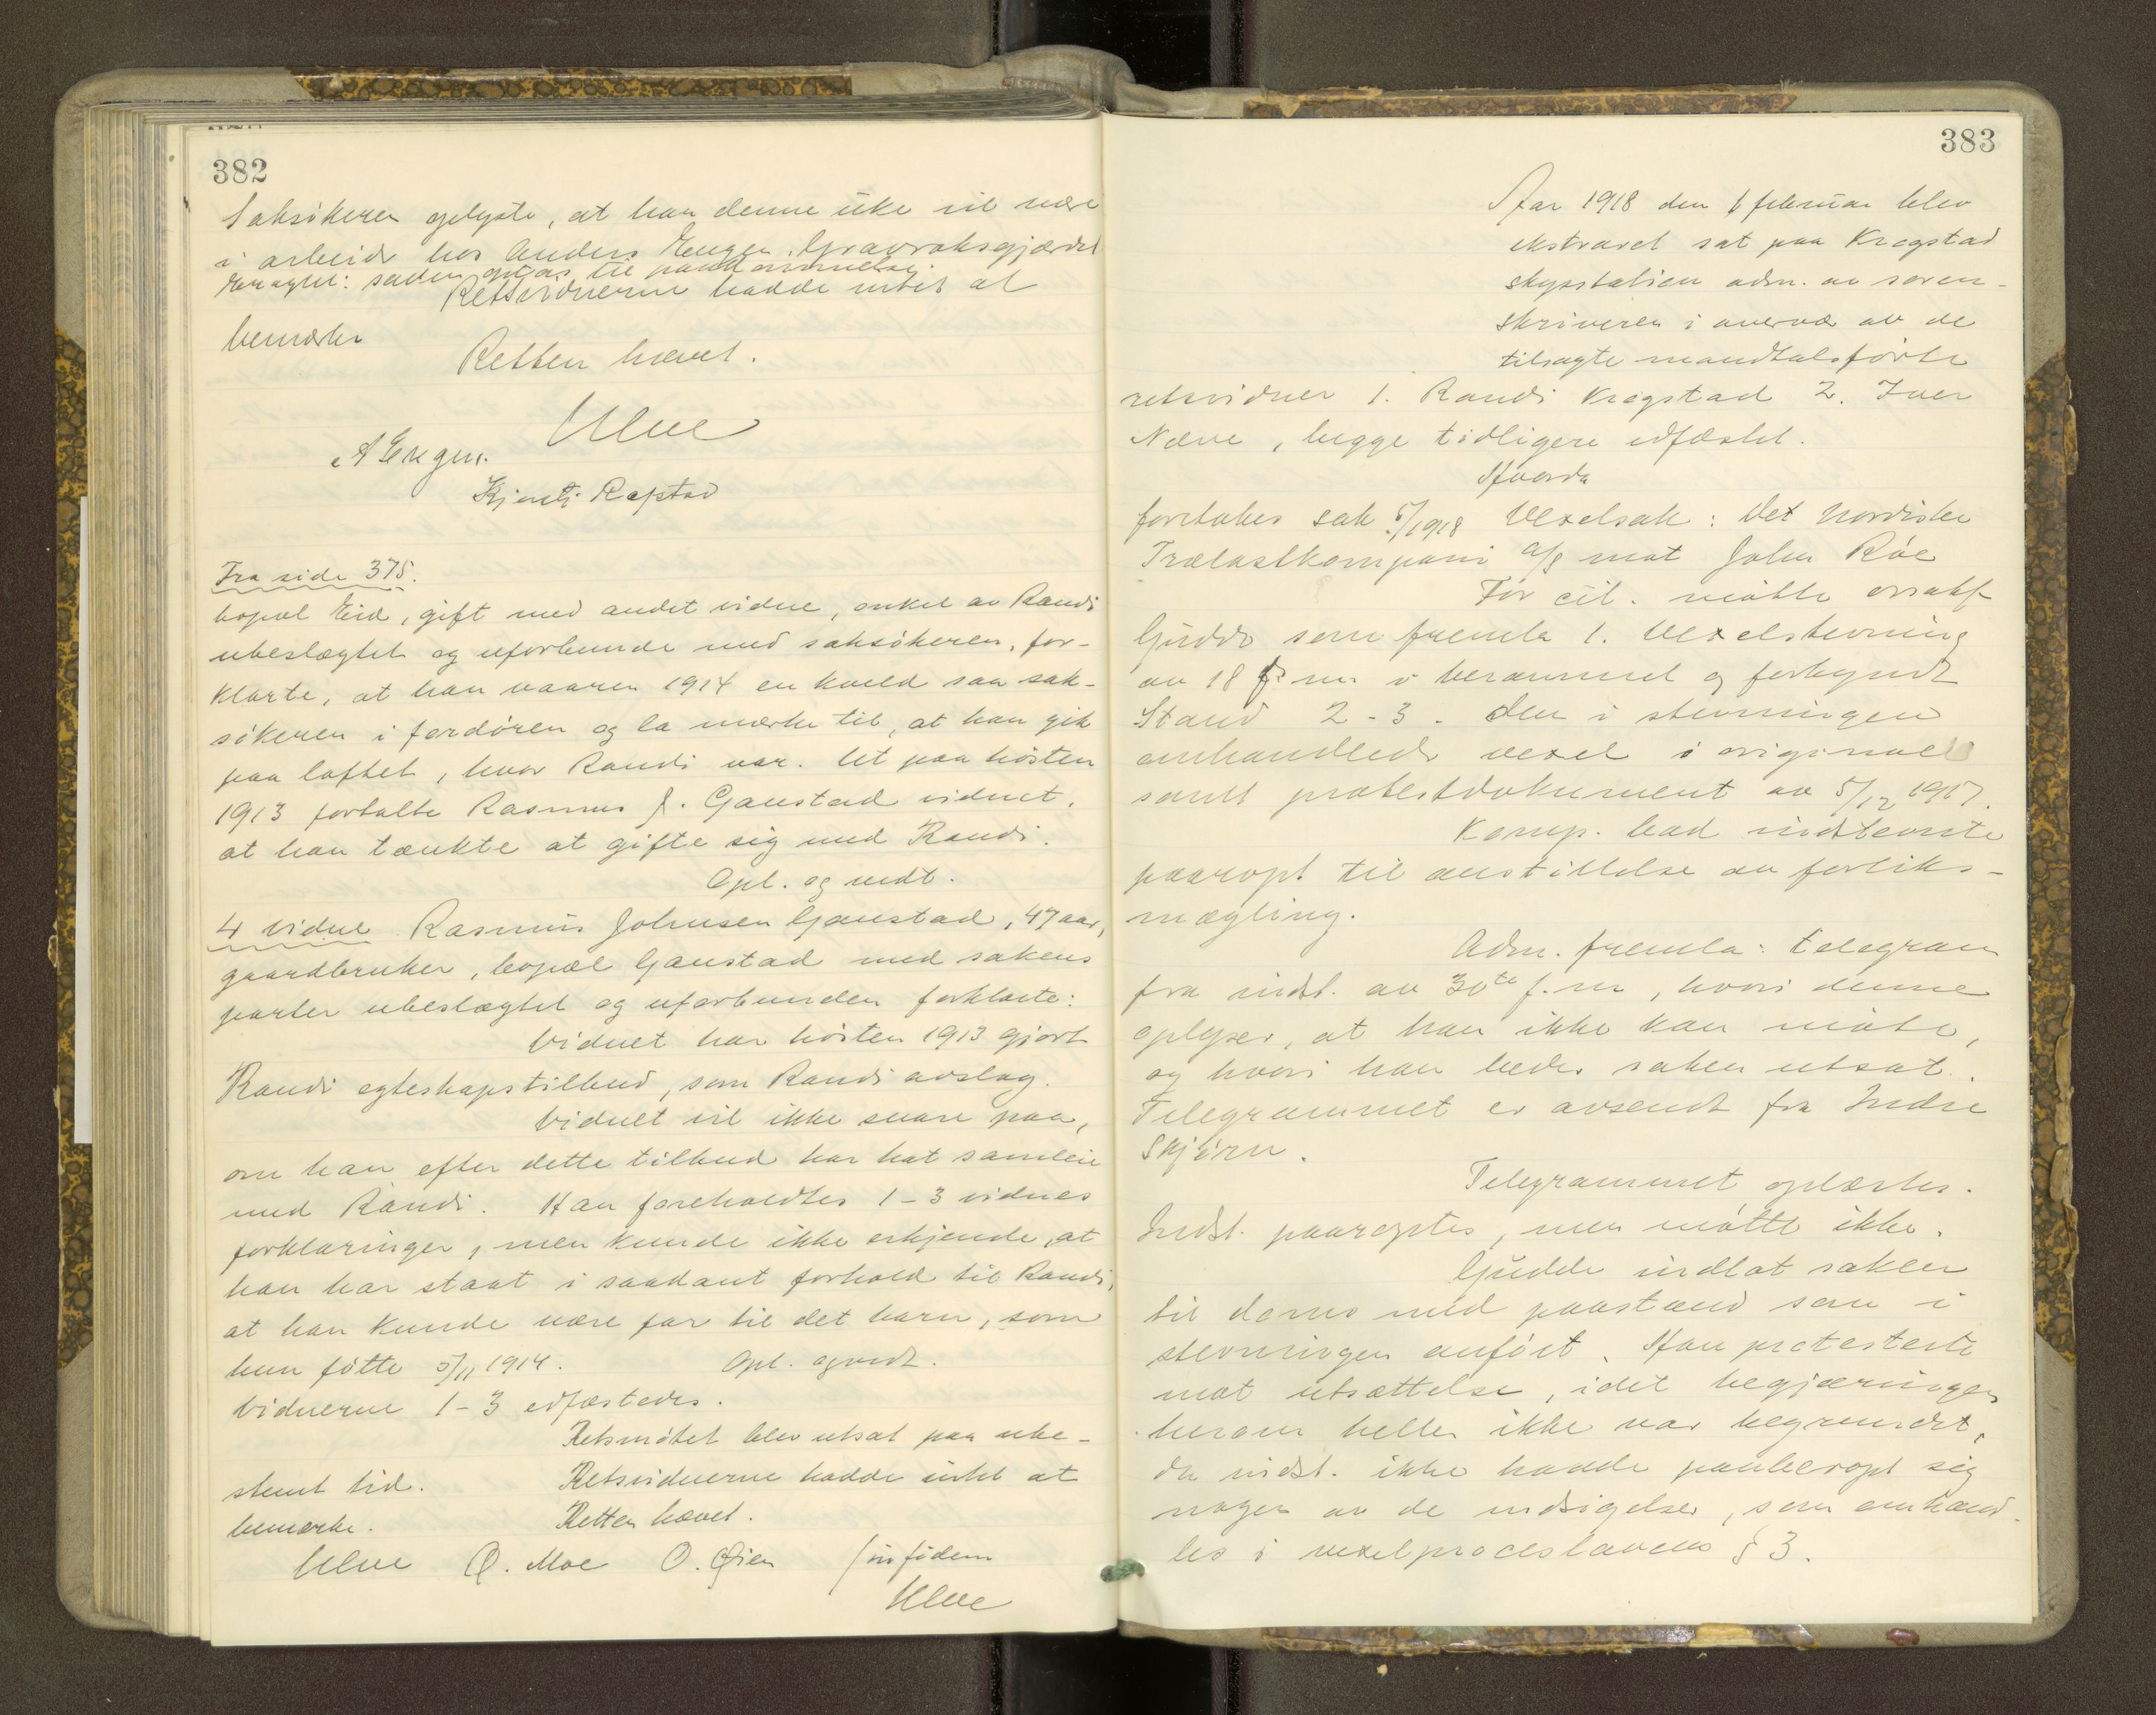 382
Saksökeren oplyste, at han denne uke vil være
i arbeide hos Anders Engen, Gravraksgjærdet
eragtet: saken optas til paadømmelse
Retsvidnerne hadde intet at
bemerke
Retten hævet.
Ulve
A Engen.
Kjersti Rapstad
Fra side 375.
bopæl Eid, gift med andet vidne, onkel av Randi
ubeslægtet og uforbunden med saksökeren, for-
klarte, at han vaaren 1914 en kveld saa sak-
sökeren i fordören og la merke til, at han gik
paa loftet, hvor Randi var. Ut paa hösten
1913 fortalte Rasmus J. Gaustad vidnet,
at han tænkte at gifte sig med Randi.
Opl. og vedt.
4 vidne Rasmus Johnsen Gaustad, 47 aar,
gaardbruker, bopæl Gaustad med sakens
parter ubeslægtet og uforbunden forklarte:
Vidnet har hösten 1913 gjort
Randi egteskapstilbud, som Randi avslog.
Vidnet vil ikke svare paa,
om han efter dette tilbud har hat samleie
med Randi. Han foreholdtes 1-3 vidnes
forklaringer, men kunde ikke erkjende, at
han har staat i saadant forhold til Randi,
at han kunde være far til det barn, som
hun fötte 5/11 1914. Opl. og vedt.
Vidnerne 1-3 edfæstedes.
Retsmötet blev utsat paa ube-
stemt tid. Retsvidnerne hadde intet at
bemerke. Retten hævet.
Ulve O. Moe O. Øien
Ulve
383
Aar 1918 den 1 februar blev
ekstraret sat paa Krogstad
skysstation adm. av soren-
skriveren i overvær av de
tilsagte mandtalsförte
retsvidner 1. Randi Krogstad 2. Iver
Næve, begge tidligere edfæstet.
Hvorda
foretokes sak 5/1918 Vexelsak: Det Nordiske
Trælastkompani A/S mot John Röe
For cit. mötte orsakf
Gudde som fremla 1. Vexelstevning
av 18 f. m. i berammet og forkyndt
Stand 2-3. Den i stevningen
omhandlede vexel i original
samt protestdokument av 5/12 1917.
Komp. bad indstevnte
paaropt til anstillelse av forliks-
mægling.
Adm. fremla: telegram
fra indst. av 30te f. m, hvori denne
oplyser, at han ikke kan möte,
og hvori han beder saken utsat.
Telegrammet er avsendt fra Indre
Skjörn.
Telegrammet oplæstes.
Indst. paaroptes, men mötte ikke.
Gudde indlot saken
til doms med paastand som i
stevningen anfört. Han protesterte
mot utsættelse, idet begjæringen
herom heller ikke var begrundet,
da indst. ikke hadde paaberopt sig
nogen av de indsigelser, som omhand-
les i vexelproceslovens § 3.